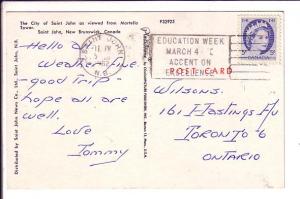 The City of Saint John as viewed from Martello
Tower.
Saint John, New Brunswick, Canada
P32925
Hello all
Weather fine.
good trip -
hope all are
well.
Love
Tommy
SAINT JOHN
N.B.
EDUCATION WEEK
MARCH 4-
ACCENT ON
EXCELLENCE
CANADA
POST CARD
Wilsons.
161 Hastings Av
TORONTO 6
ONTARIO
Distributed by Saint John News Co. Ltd., Saint John, N.B.